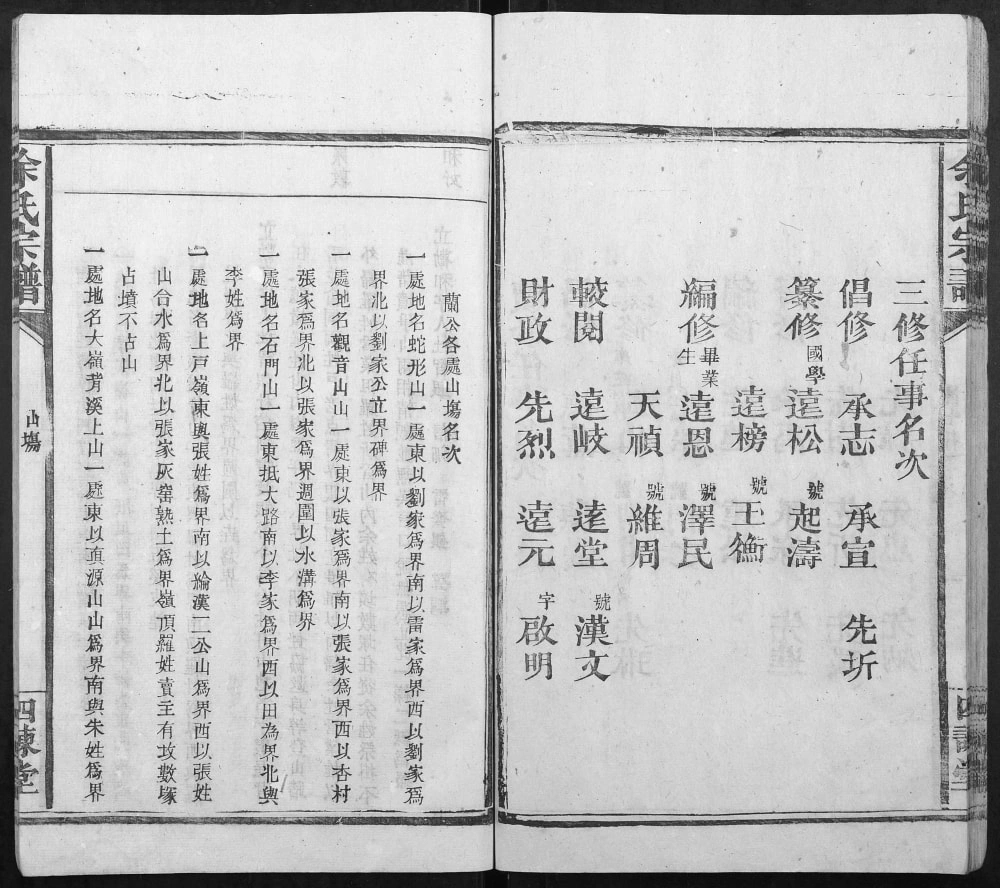 三修任事名次
倡修 承志 承宣 先圻
纂修國學遠松號起濤
遠榜號王衡
編修畢業生遠恩號澤民
天禎號維周
較閱 遠岐 遠堂號漢文
財政 先烈 遠元字啟明
余氏宗譜
山塲
四諫堂
蘭公各處山塲名次
一處地名蛇形山一處東以劉家爲界南以雷家爲界西以劉家爲
界北以劉家公立界碑爲界
一處地名觀音山山一處東以張家爲界南以張家爲界西以杏村
張家爲界北以張家爲界週圍以水溝爲界
一處地名石門山一處東抵大路南以李家爲界西以田為界北與
李姓爲界
一處地名上戸嶺東與張姓爲界南以綸漢二公山爲界西以張姓
山合水爲界北以張家灰窑熟土爲界嶺頂羅姓賣主有坟數塚
占墳不占山
一處地名大嶺背溪上山一處東以真源山山爲界南與朱姓爲界